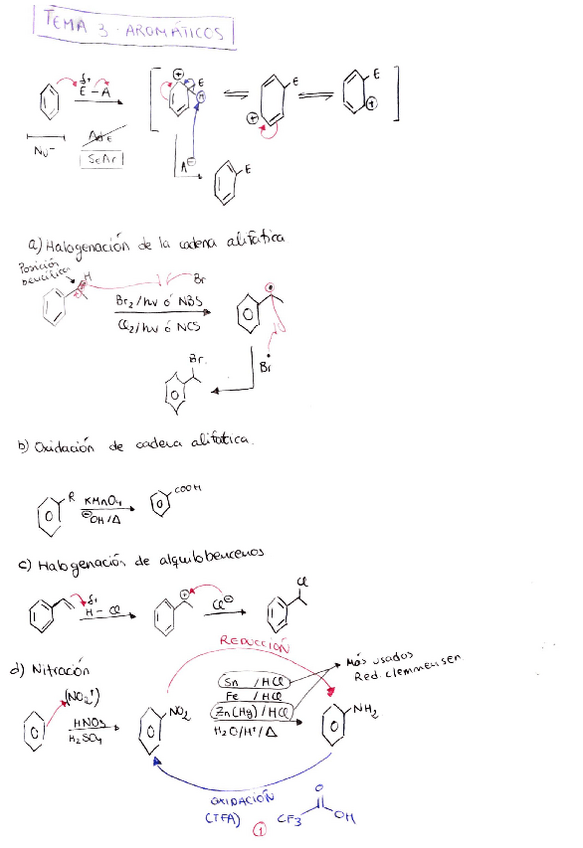 TEMA 3. AROMÁTICOS
δ+
E-A
⊕
E
H
E
⊕
E
⊕
Nu⁻
AdE
SEAr
A⊖
E
a) Halogenación de la cadena alifática
Posición
bencílica
H
Br
Br₂/hν ó NBS
Cl₂/hν ó NCS
Br
Br
b) Oxidación de cadena alifática.
R
KMnO₄
⊖OH/Δ
COOH
c) Halogenación de alquilobencenos
δ+
H-Cl
⊕
Cl⊖
Cl
REDUCCIÓN
d) Nitración
(NO₂⁺)
HNO₃
H₂SO₄
NO₂
Sn /HCl
Fe /HCl
Zn(Hg)/HCl
H₂O/H⁺/Δ
Más usados
Red. clemmensen
NH₂
OXIDACIÓN
(TFA)
CF₃
O
OH
1